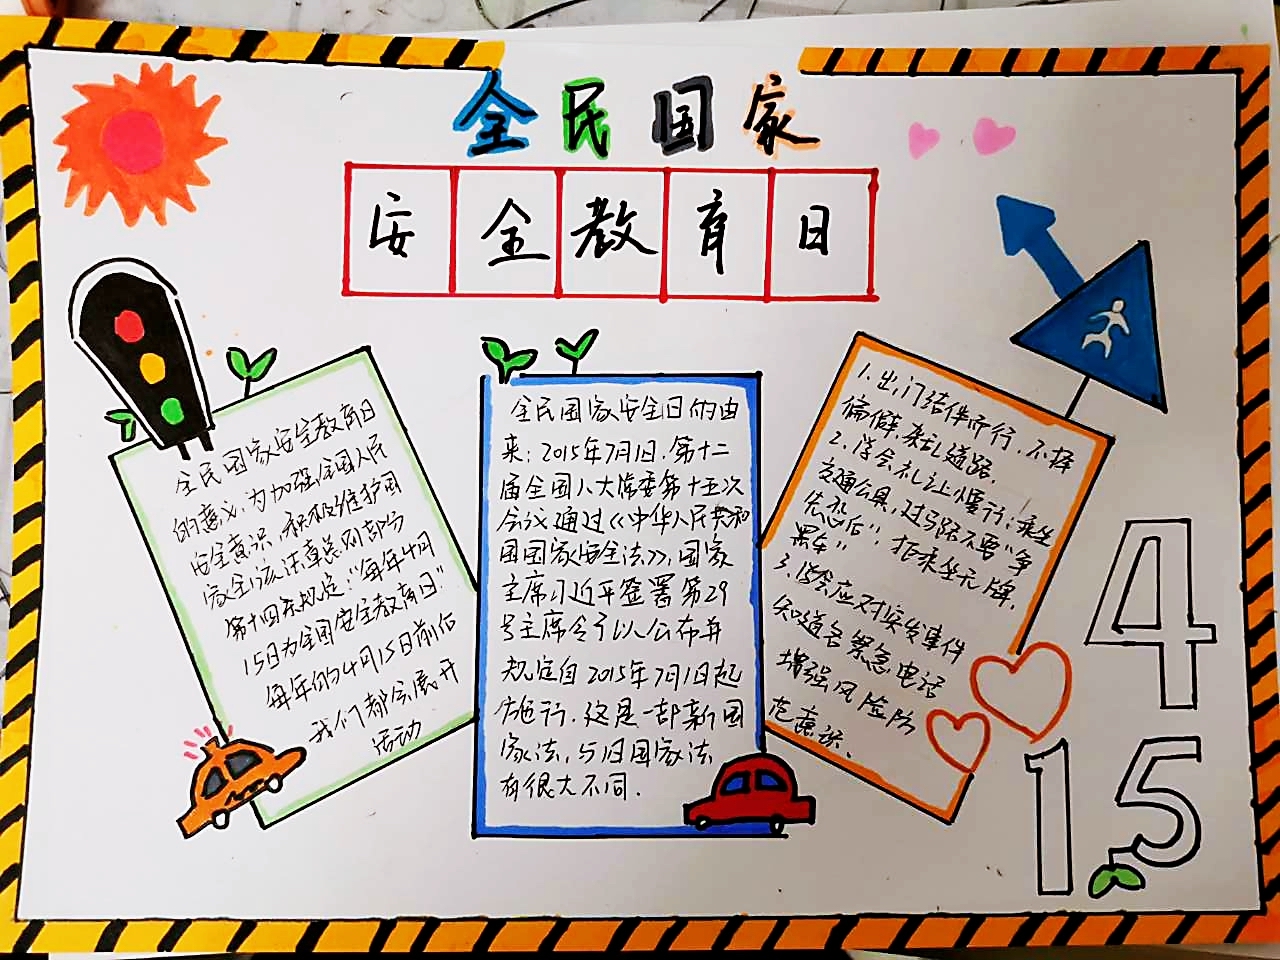 全民国家
安全教育日
全民国家安全教育日
的意义，为加强全国人民
安全意识，积极维护国
家安全，该法直总则部分
第十四条规定：“每年4月
15日为全国安全教育日”
每年的4月15日前后
我们都会展开
活动
全民国家安全日的由
来：2015年7月1日，第十二
届全国人大常委第十五次
会议通过《中华人民共和
国国家安全法》，国家
主席习近平签署第29
号主席令予以公布并
规定自2015年7月1日起
施行，这是一部新国
家法，与旧国家法
有很大不同．
1.出门结伴而行，不择
偏僻，杂乱道路．
2.学会礼让慢行；乘坐
交通公具，过马路不要“争
先恐后”，拒乘坐无牌，
黑车”
3.学会应对突发事件
知道各紧急电话
增强风险防
范意识．
4
15